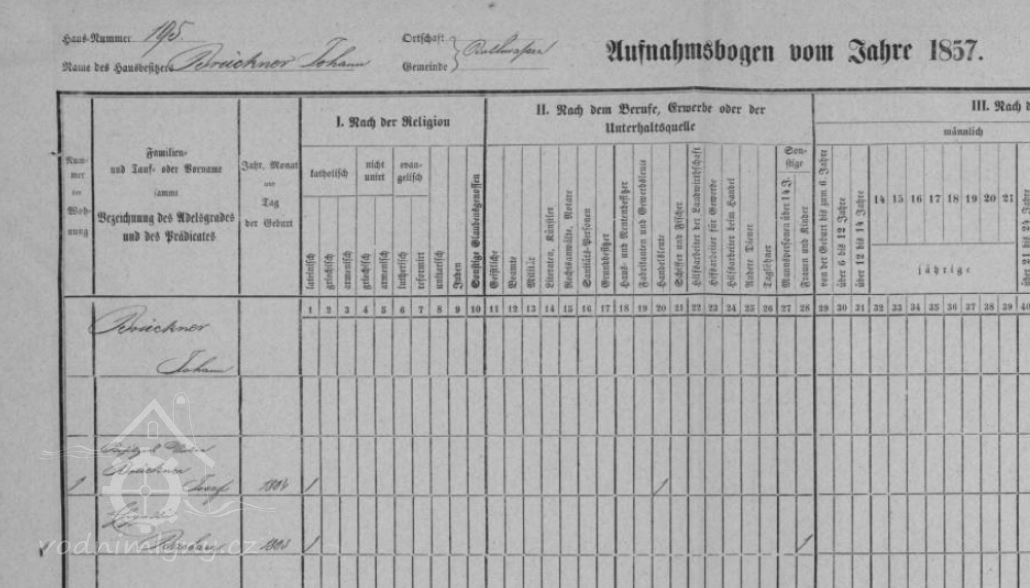 Haus-Nummer 195.
Name des Hausbesitzers Brückner Johann
Ortschaft
Gemeinde
Aufnahmsbogen vom Jahre 1857.
Num-
mer
der
Woh-
nung
Familien-
und Tauf- oder Vorname
sammt
Bezeichnung des Adelsgrades
und des Prädicates
Jahr, Monat
und
Tag
der Geburt
I. Nach der Religion
katholisch
nicht
unirt
evan-
gelisch
lateinisch
griechisch
armenisch
griechisch
armenisch
lutherisch
reformirt
unitarisch
Juden
Sonstige Glaubensgenossen
II. Nach dem Berufe, Erwerbe oder der
Unterhaltsquelle
Geistliche
Beamte
Militär
Literaten, Künstler
Rechtsanwälte, Notare
Sanitäts-Personen
Grundbesitzer
Haus- und Rentenbesitzer
Fabrikanten und Gewerbsleute
Handelsleute
Schiffer und Fischer
Hilfsarbeiter der Landwirthschaft
Hilfsarbeiter für Gewerbe
Hilfsarbeiter beim Handel
Andere Diener
Taglöhner
Son-
stige
Mannspersonen über 14 J.
Frauen und Kinder
III. Nach d
männlich
von der Geburt bis zum 6 Jahre
über 6 bis 12 Jahre
über 12 bis 14 Jahre
14 15 16 17 18 19 20 21
jährige
über 21 bis 24 Jahre
1 2 3 4 5 6 7 8 9 10 11 12 13 14 15 16 17 18 19 20 21 22 23 24 25 26 27 28 29 30 31 32 33 34 35 36 37 38 39 40
Brückner
Johann
Brückner
1 Josef 1804 1 1
Barbara 1803 1 1
vodnimlyny.cz